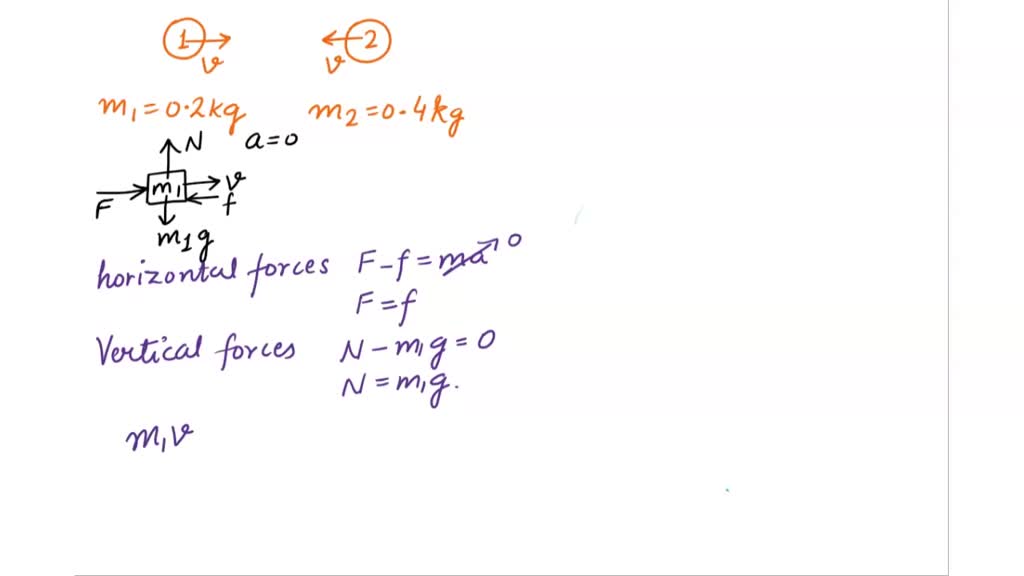 1 2
v v
m₁ = 0.2kg m₂ = 0.4kg
N a = 0
F m₁ v
f
m₁g
horizontal forces F - f = ma 0
F = f
Vertical forces N - m₁g = 0
N = m₁g.
m₁v